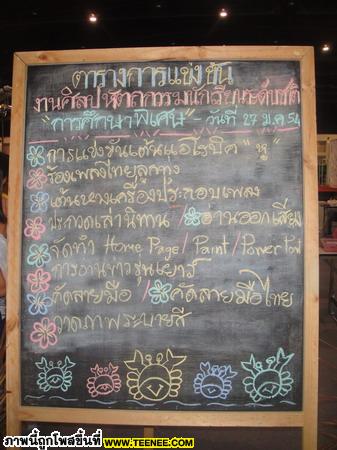 ตารางการแข่งขัน
งานศิลปหัตถกรรมนักเรียนระดับชาติ
"การศึกษาพิเศษ" - วันที่ 27 ม.ค 54
การแข่งขันเต้นแอโรบิค "หู"
ร้องเพลงไทยลูกทุ่ง
เต้นหางเครื่องประกอบเพลง
ประกวดเล่านิทาน / อ่านออกเสียง
จัดทำ Home Page / Paint / Power Point
การอ่านข่าว
คัดลายมือ / คัดลายมือไทย
วาดภาพระบายสี
ภาพนี้ถูกโพสขึ้นที่ WWW.TEENEE.COM